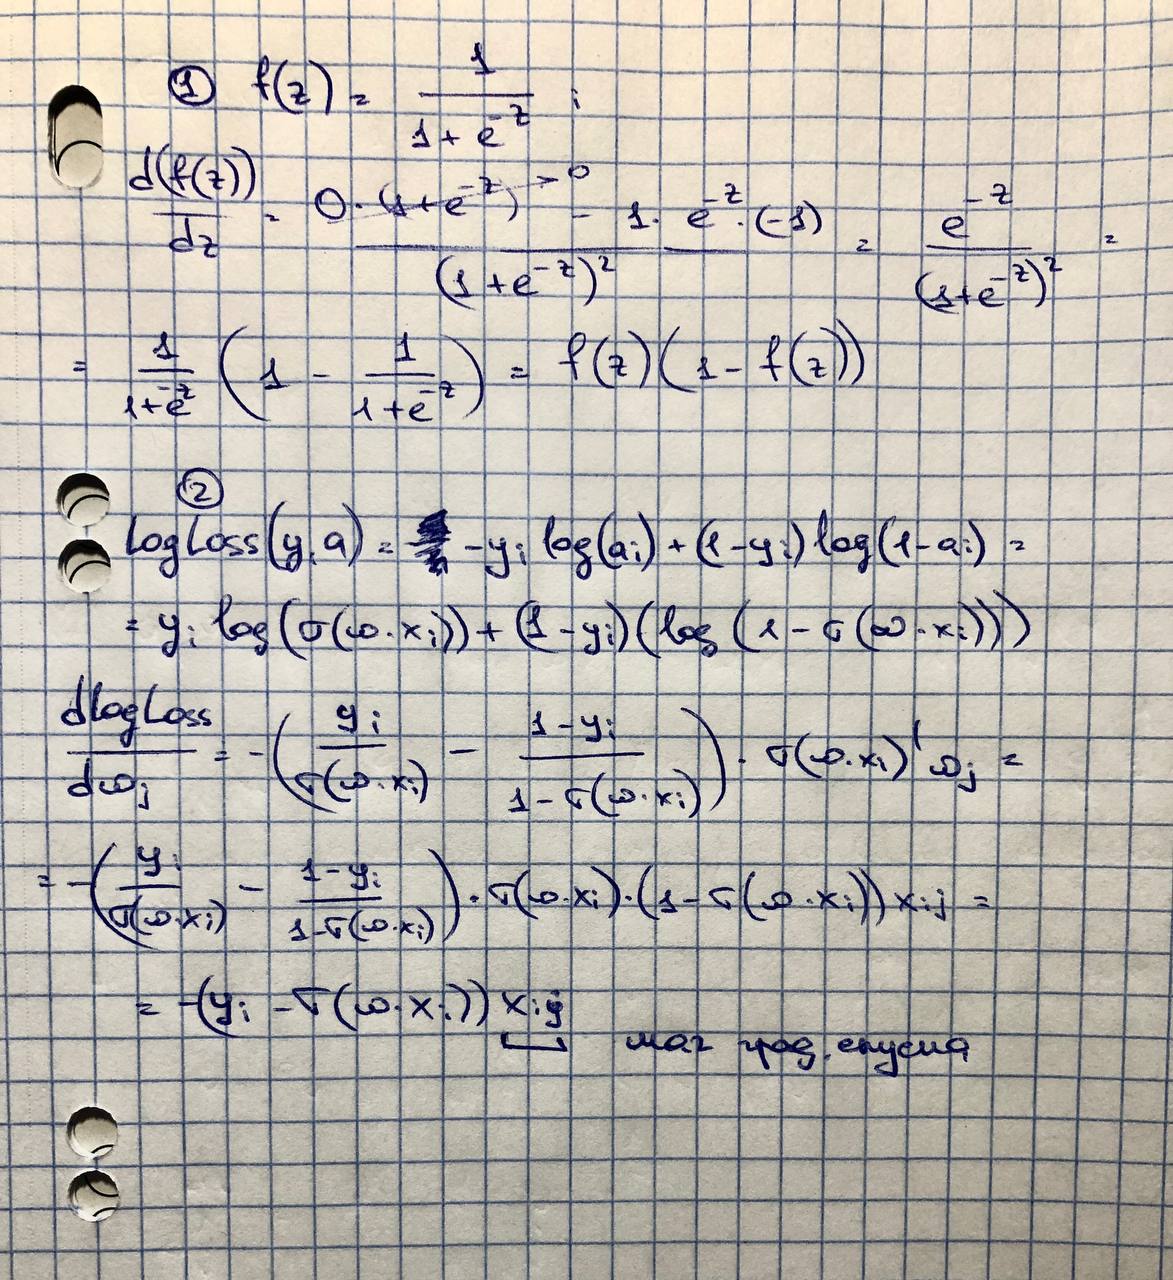 ① f(z) = 1/(1 + e^{-z}) ;
d(f(z))/dz = (0 · (1 + e^{-z}) → 0 - 1 · e^{-z} · (-1))/(1 + e^{-z})² = e^{-z}/(1+e^{-z})² =
= 1/(1+e^{-z}) (1 - 1/(1+e^{-z})) = f(z)(1 - f(z))
②
LogLoss(y, a) = -y_i log(a_i) + (1-y_i) log(1-a_i) =
= y_i log(σ(ω·x_i)) + (1-y_i)(log(1 - σ(ω·x_i)))
dLogLoss/dω_j = -(y_i/σ(ω·x_i) - (1-y_i)/(1-σ(ω·x_i))) · σ(ω·x_i)'ω_j =
= -(y_i/σ(ω·x_i) - (1-y_i)/(1-σ(ω·x_i))) · σ(ω·x_i)·(1-σ(ω·x_i)) x_ij =
= -(y_i - σ(ω·x_i)) x_ij
шаг град. спуска